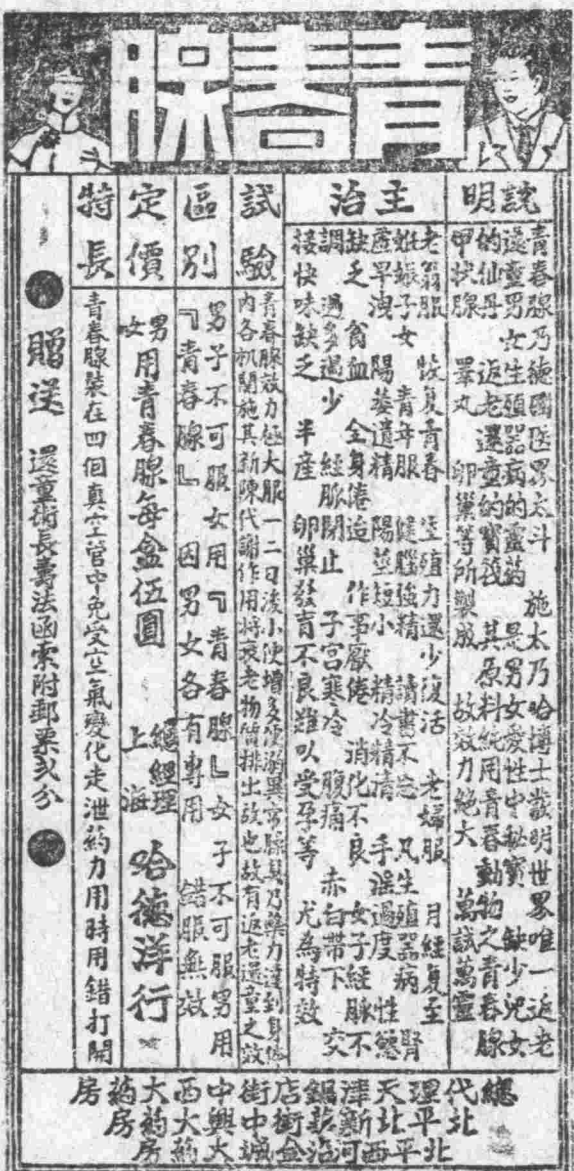 青春腺
說明
青春腺乃德國医界太斗 施太乃哈博士發明世界唯一返老
還童男女生殖器病的靈药 是男女愛性中秘寶 缺少兒女
的仙丹 返老還童的寶筏 其原料純用青春動物之青春腺
甲狀腺 睪丸 卵巢等所製成 故效力絶大 萬試萬靈
主治
老翁服 恢复青春 生殖力還少復活 老婦服 月經复至
妊娠子女 青年服 健腦強精 讀書不忘 凡生殖器病 腎
虛早洩 陽萎遺精 陽莖短小 精冷精清 手淫過度 性慾
缺乏 貧血 全身倦怠 作事厭倦 消化不良 女子經脉不
調 過多過少 經脉閉止 子宮寒冷 腹痛 赤白帶下 交
接快味缺乏 半産 卵巢發育不良難以受孕等 尤為特效
試驗
青春腺效力極大服一二日後小便增多便溺異常臊臭乃藥力達到身体
内各机関施其新陳代謝作用将衰老物質排出故也故有返老還童之效
區別
男子不可服女用『青春腺』女子不可服男用
『青春腺』因男女各有專用 錯服無效
定價
男女用青春腺每盒伍圓
總經理
上海
哈德洋行
特長
青春腺裝在四個真空管中免受空氣變化走泄药力用時用錯打開
贈送 還童術長壽法函索附郵票弍分
總代理
北平
北平西河沿中
天津新
鍋店街中
大药房
西大药房
中興大药房